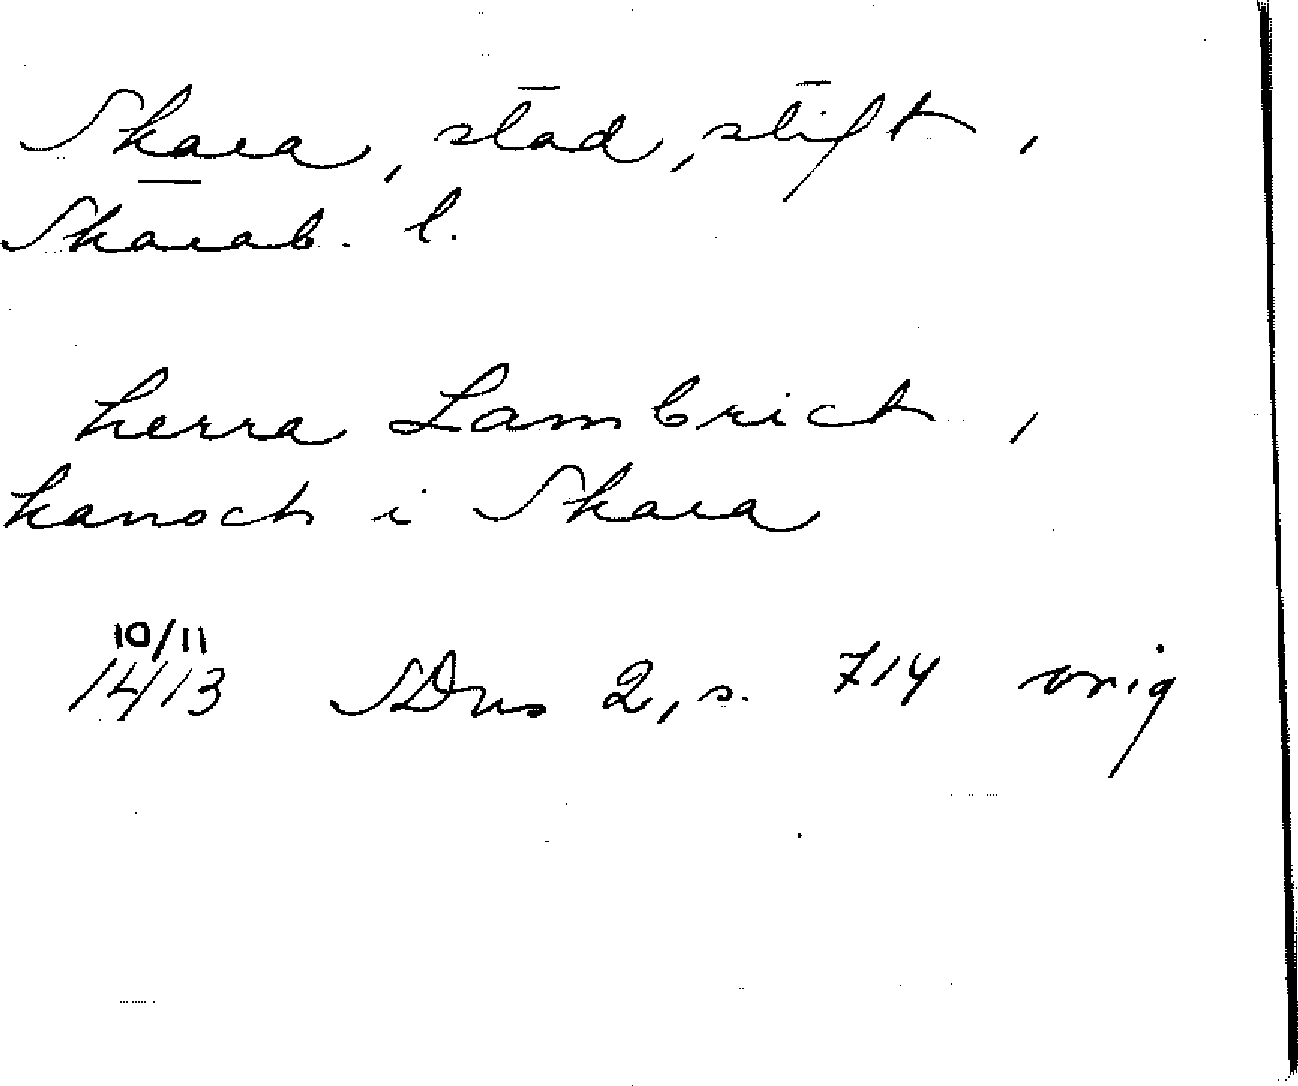 Skara, stad, stift,
Skarab. l.
herra Lambrict,
kanock i Skara
10/11
14/13 SDns 2, s. 714 orig